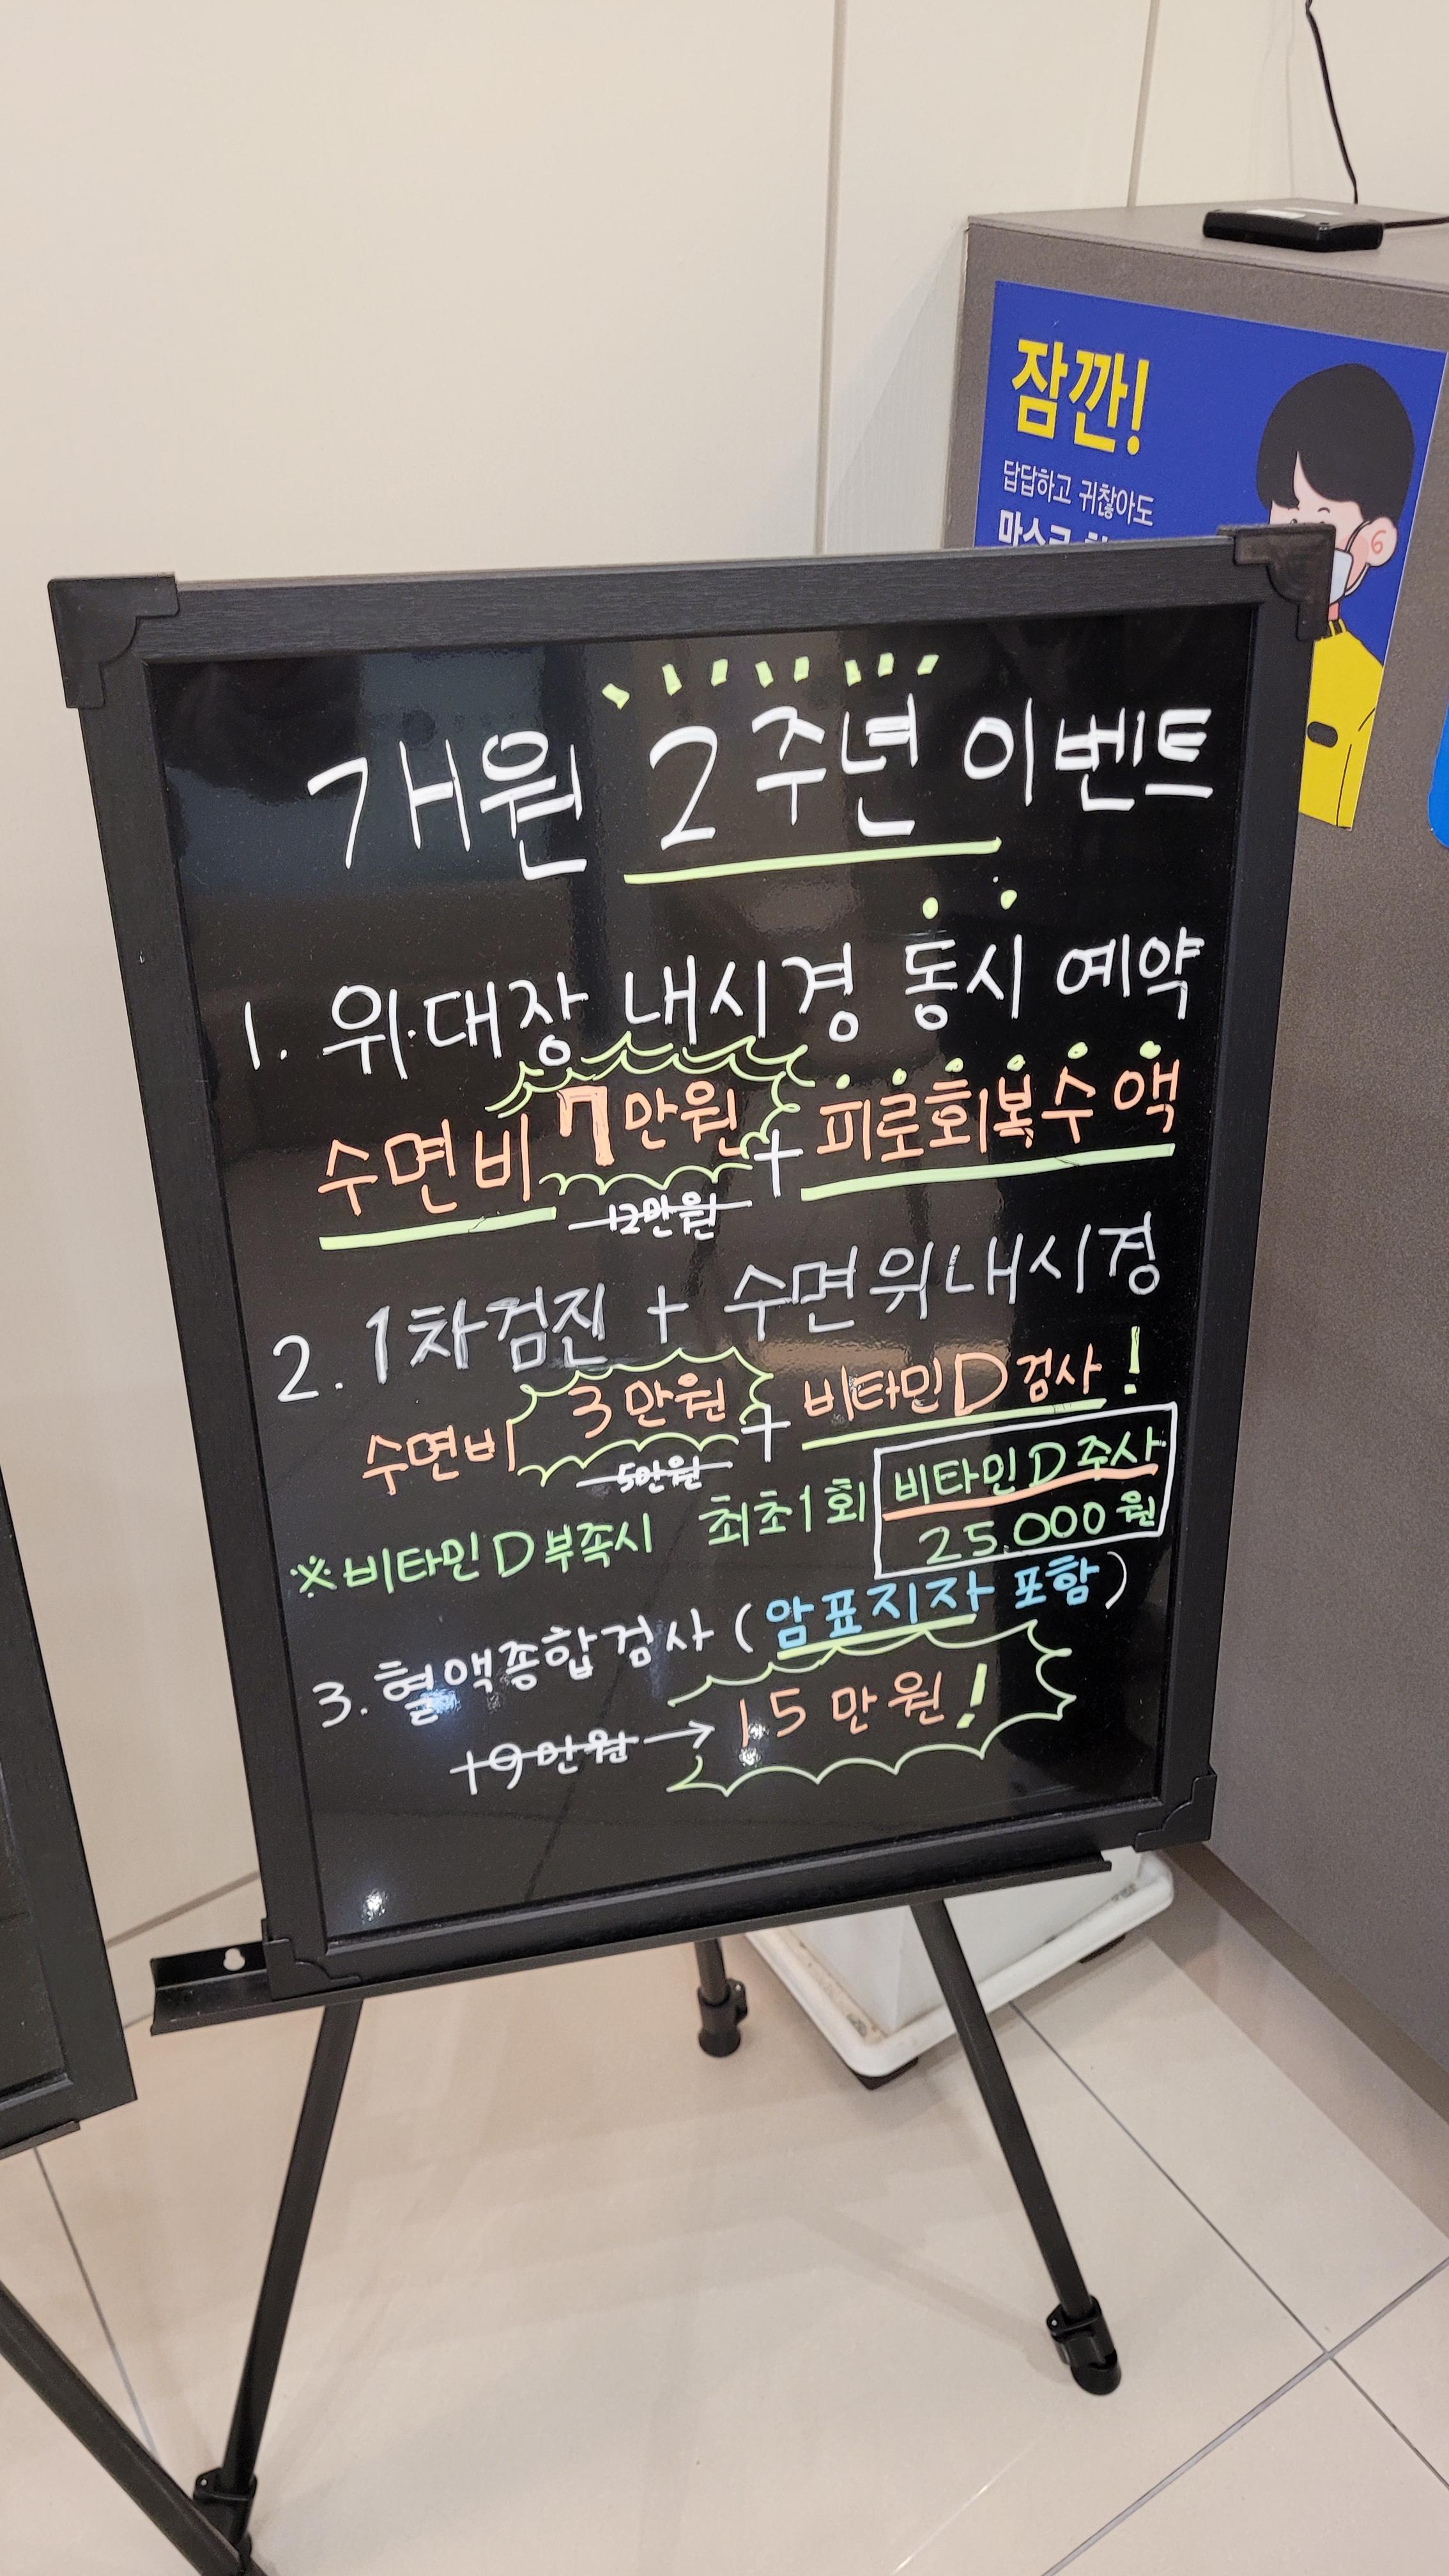 잠깐!
답답하고 귀찮아도
개원 2주년 이벤트
1. 위·대장 내시경 동시 예약
수면비 7만원 + 피로회복수액
12만원
2. 1차검진 + 수면위내시경
수면비 3만원 + 비타민D 검사!
5만원
※비타민D부족시 최초1회 비타민D 주사
25.000원
3. 혈액종합검사 (암표지자 포함)
19만원 → 15만원!